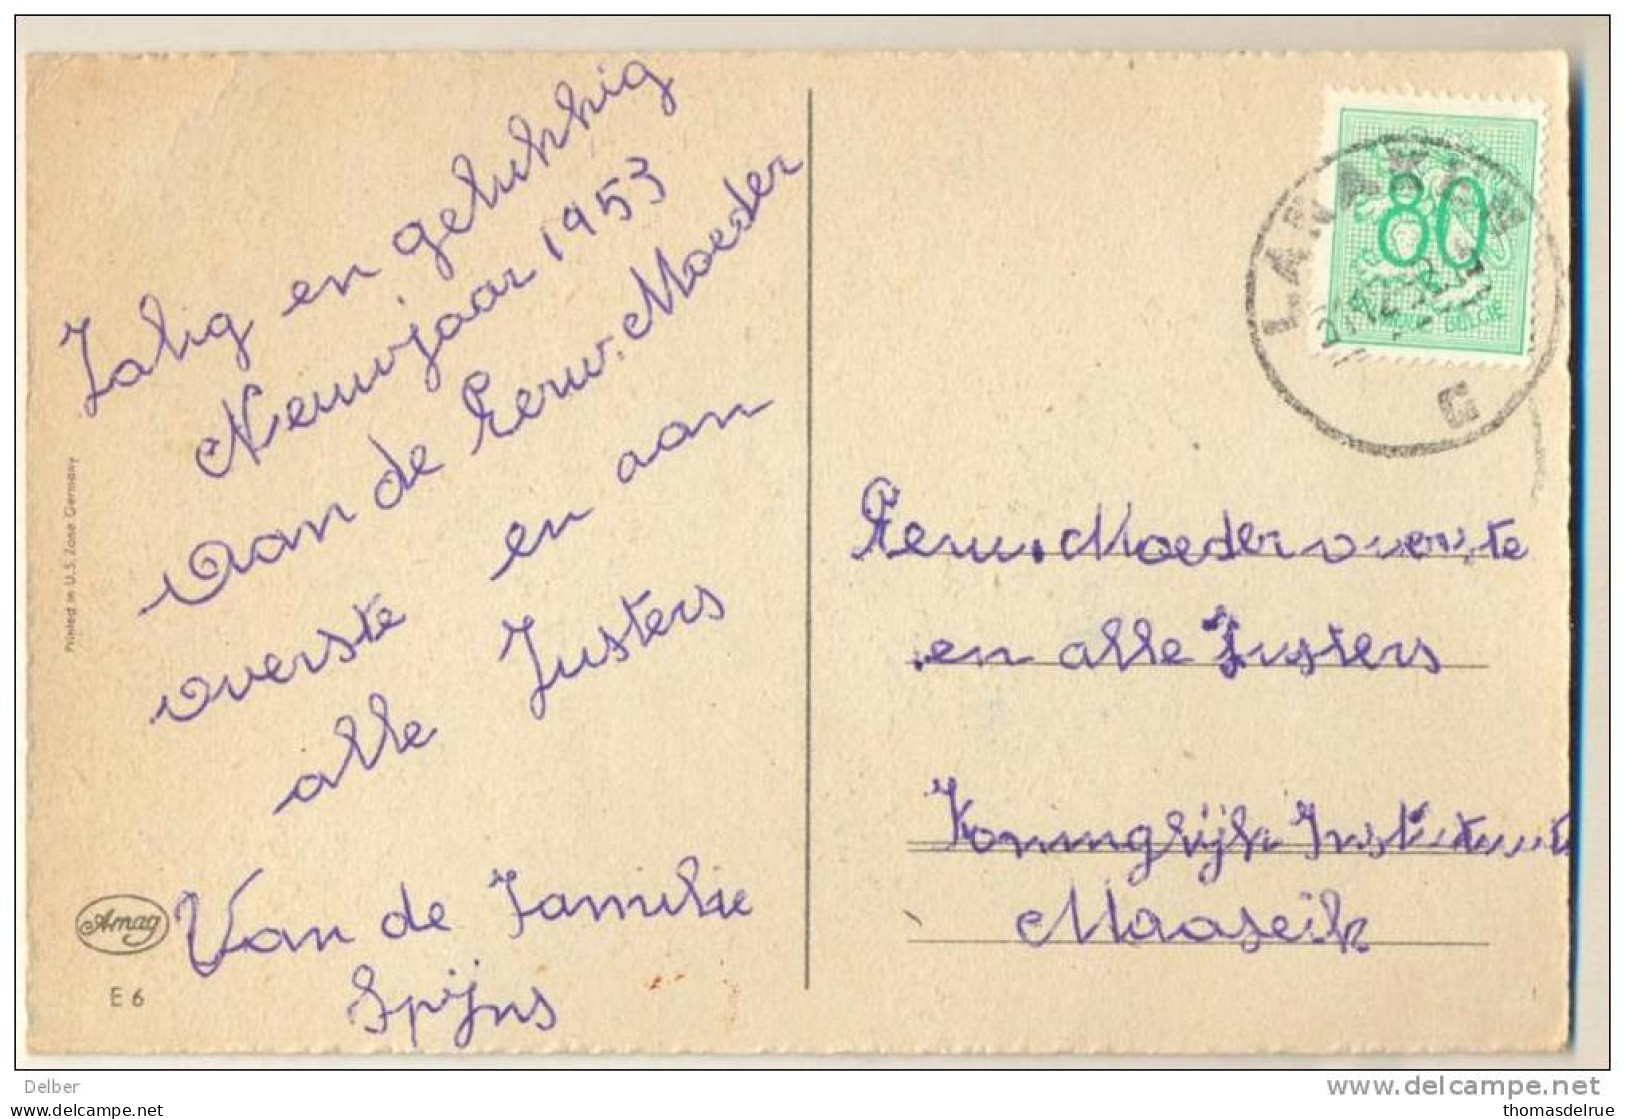 Zalig en gelukkig
Nieuwjaar 1953
aan de Eerw. Moeder
overste en aan
alle Zusters
Van de Familie
Spijns
Printed in U.S. Zone Germany
Amag
E 6
80
BELGIE
LANAKEN
G
Eerw. Moeder overste
en alle Zusters
Koninglijk Instituut
Maaseik
Delber
www.delcampe.net
thomasdelrue